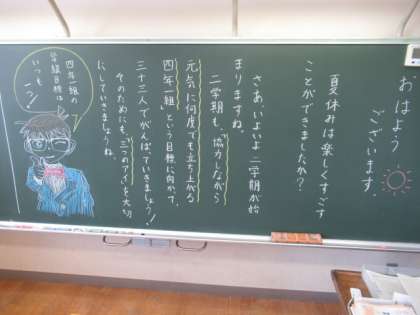 おはよう
ございます。
夏休みは楽しくすごす
ことができましたか？
さあ、いよいよ二学期が始
まりますね。
二学期も、「協力しながら
元気に何度でも立ち上がる
四年一組」という目標に向かって、
三十三人でがんばっていきましょう！
そのためにも、三つのアイを大切
にしていきましょうね。
四年一組の
学級目標は
いつも
一つ！